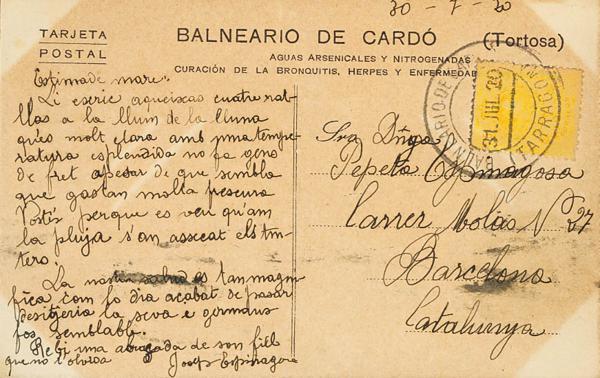 30 - 7 - 20
TARJETA
POSTAL
BALNEARIO DE CARDÓ (Tortosa)
AGUAS ARSENICALES Y NITROGENADAS
CURACIÓN DE LA BRONQUITIS, HERPES Y ENFERMEDA
BALNEARIO DE
31 JUL 20
(TARRAGONA)
Estimade mare:
Li escric aqueixas cuatre rat-
llas a la llum de la lluna
qu'es molt clara amb una tempe-
ratura esplendida no fa geno
de fret apesar de que sembla
que gastan molta frescura
Vostis perque es veu qu'am
la pluja s'an assecat els tin-
tero.
La nostra salud es tan magni-
fica com lo dia acabat de pasar
desitjeria la seva e germans
fos semblable.
Rebi una abraçada de son fill
que no l'olvida Josep Espinagosa
Sra Dñya
Pepeta Espinagosa
Carrer Molas Nº 27
Barcelona
Catalunya